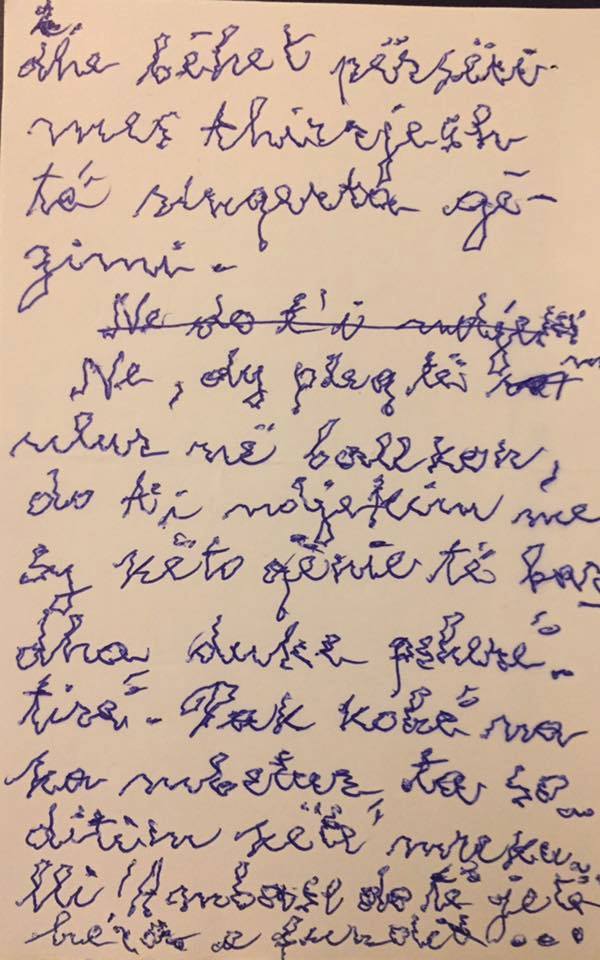 dhe bëhet përsëri
mes thirrjesh
të sinqerta gë-
zimi.
Ne do t'i ndjek
Ne, dy pleq të
ulur në ballkon,
do t'i ndjekim me
sy këto qënie të bar
dha duke pëherë
tirë. Pak kohë na
ka mbetur ta so
ditim këtë mreku
lli! Ambasi do të jetë
bërë e